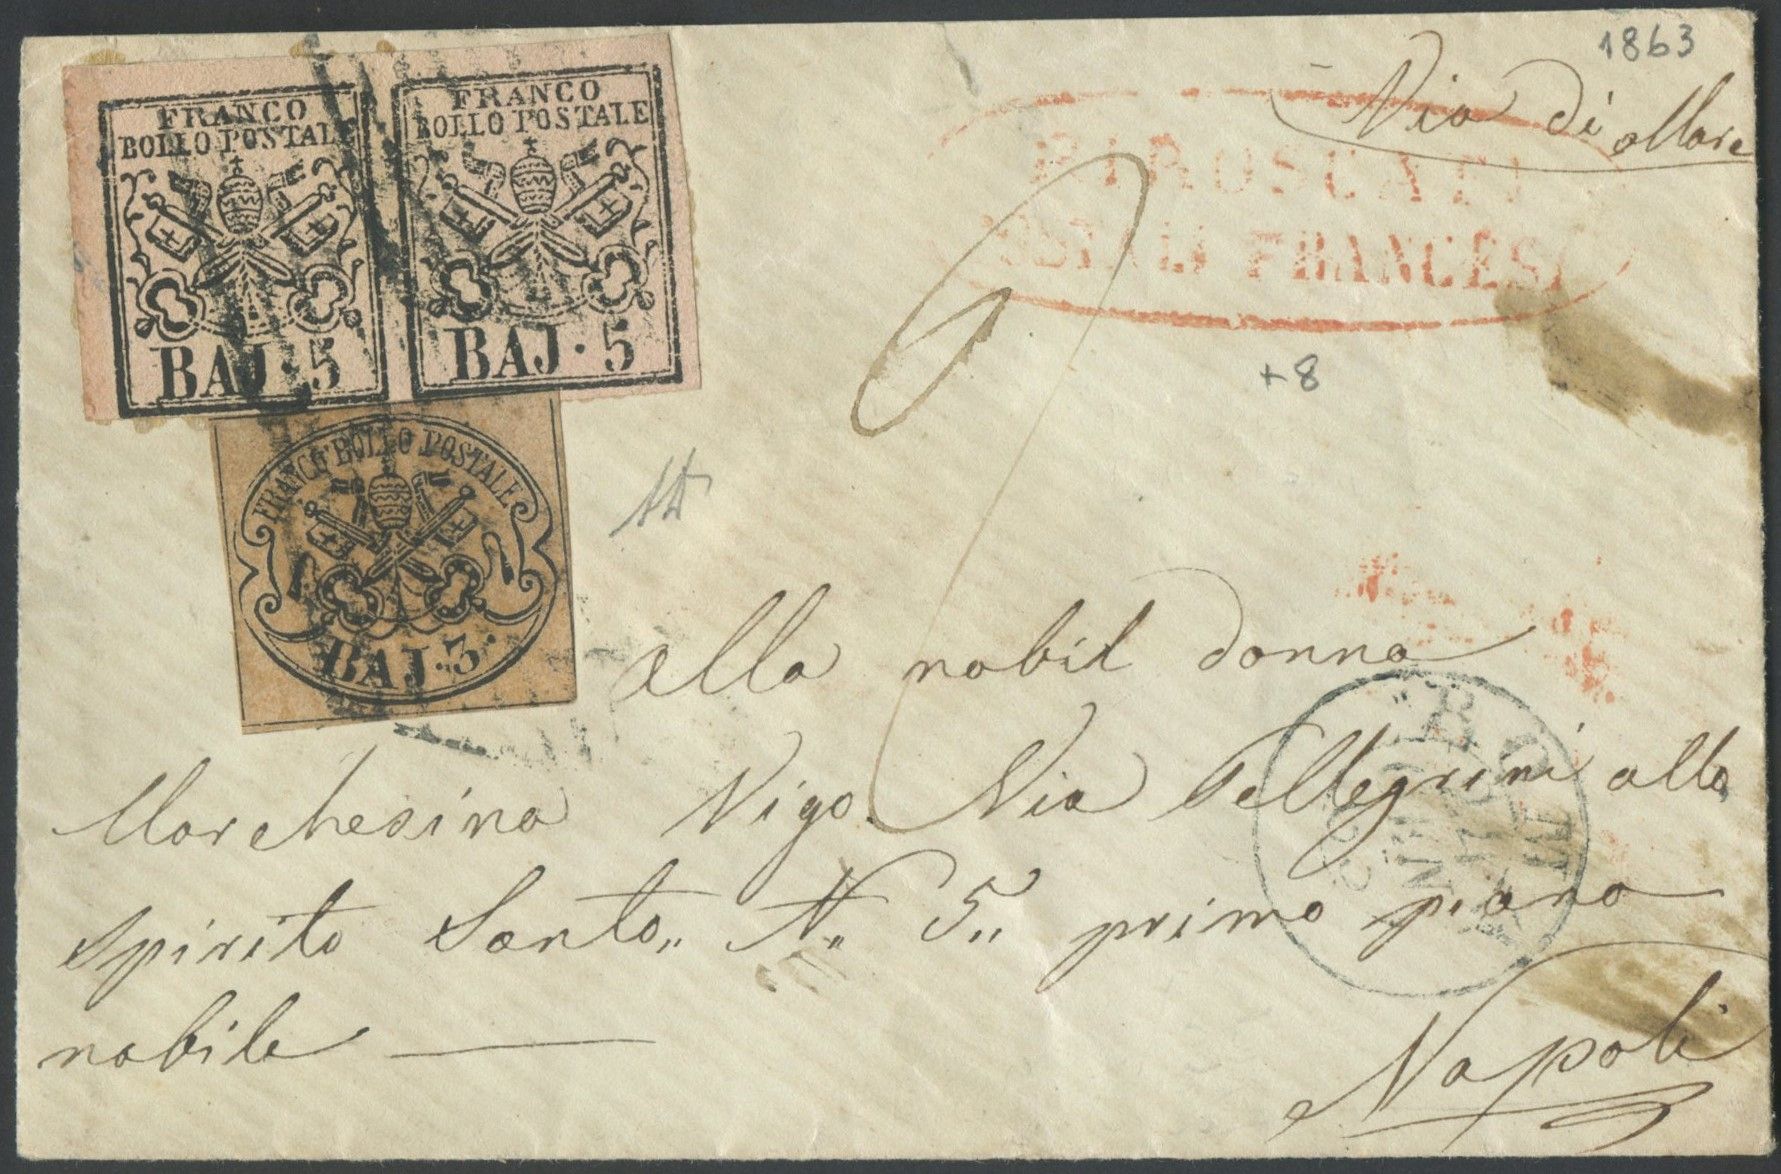 1863
Via di Mare
FRANCO
BOLLO POSTALE
BAJ·5
FRANCO
BOLLO POSTALE
BAJ·5
PIROSCAFI
POSTALI FRANCESI
+8
FRANCO BOLLO POSTALE
BAJ·3·
alla nobil donna
Marchesina Vigo. Via Pellegrini alla
Spirito Santo,, N,, 5,, primo piano
nobile
Napoli